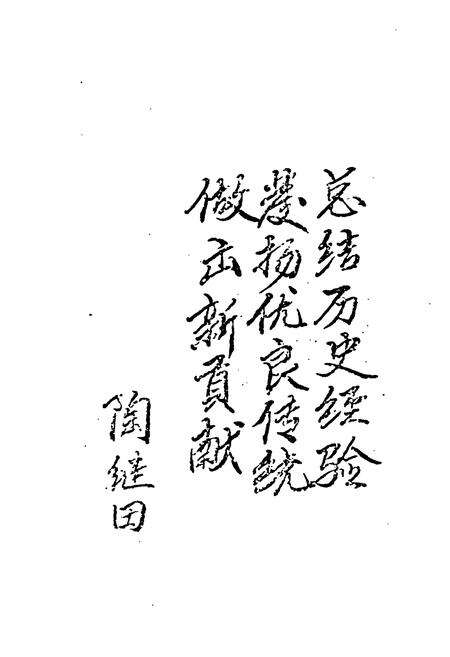 总结历史经验
发扬优良传统
做出新贡献
陶继田